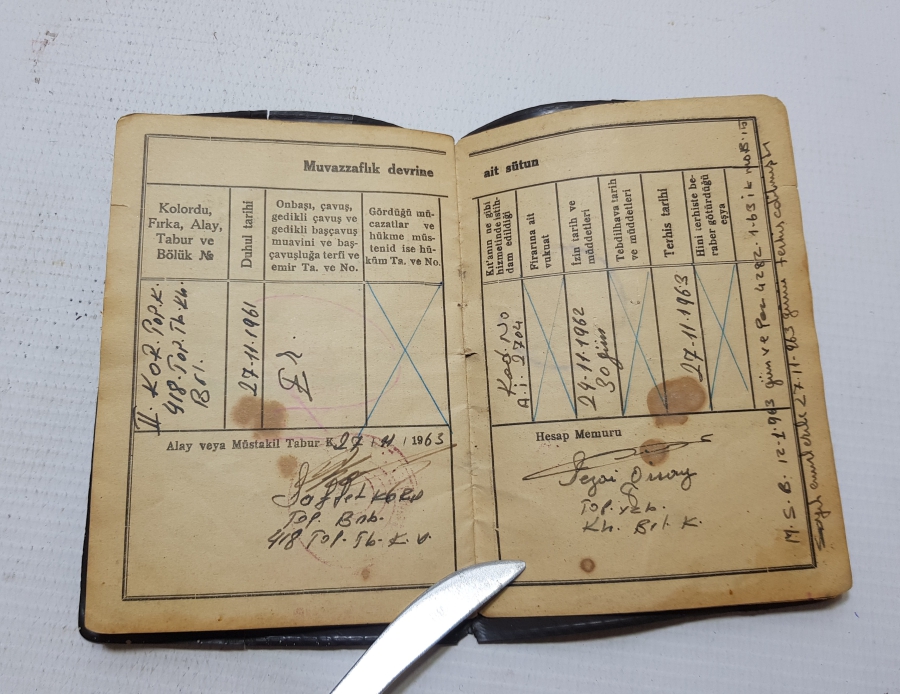 Muvazzaflık devrine ait sütun
Kolordu,
Fırka, Alay,
Tabur ve
Bölük №
Duhul tarihi
Onbaşı, çavuş,
gedikli çavuş ve
gedikli başçavuş
muavini ve baş-
çavuşluğa terfi ve
emir Ta. ve No.
Gördüğü mü-
cazatlar ve
hükme müs-
tenid ise hü-
küm Ta. ve No.
II. KOR. Top. K.
418. Top. Tb. Kh.
Brl.
27.11.1961
Er
Alay veya Müstakil Tabur K. 27 / 11 / 1963
Saffet
Top. Bnb.
418 Top. Tb. K. V.
Kıt'anın ne gibi
hizmetinde istih-
dam edildiği
Firarına ait
vukuat
İzin tarih ve
müddetleri
Tebdilhava tarih
ve müddetleri
Terhis tarihi
Hini terhiste be-
raber götürdüğü
eşya
Kad. No
A.İ. 2704
24.11.1962
30 gün
27-11-1963
Hesap Memuru
Sezai
Top. Yzb.
Kh. Brl. K.
M. S. B. 12-1-963 gün ve Per 4282-1-63
sayılı emirlerile 27-11-963 günü terhis edilmiştir